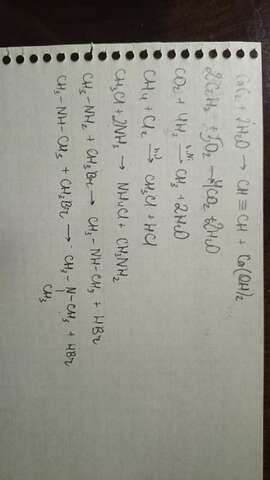 CaC₂ + 2H₂O → CH ≡ CH + Ca(OH)₂
2C₂H₂ + 5O₂ → 4CO₂ + 2H₂O
CO₂ + 4H₂ → CH₃ + 2H₂O
CH₄ + Cl₂ →hν CH₃Cl + HCl
CH₃Cl + 2NH₃ → NH₄Cl + CH₃NH₂
CH₃-NH₂ + CH₃Br → CH₃-NH-CH₃ + HBr
CH₃-NH-CH₃ + CH₃Br → CH₃-N-CH₃ + HBr
CH₃